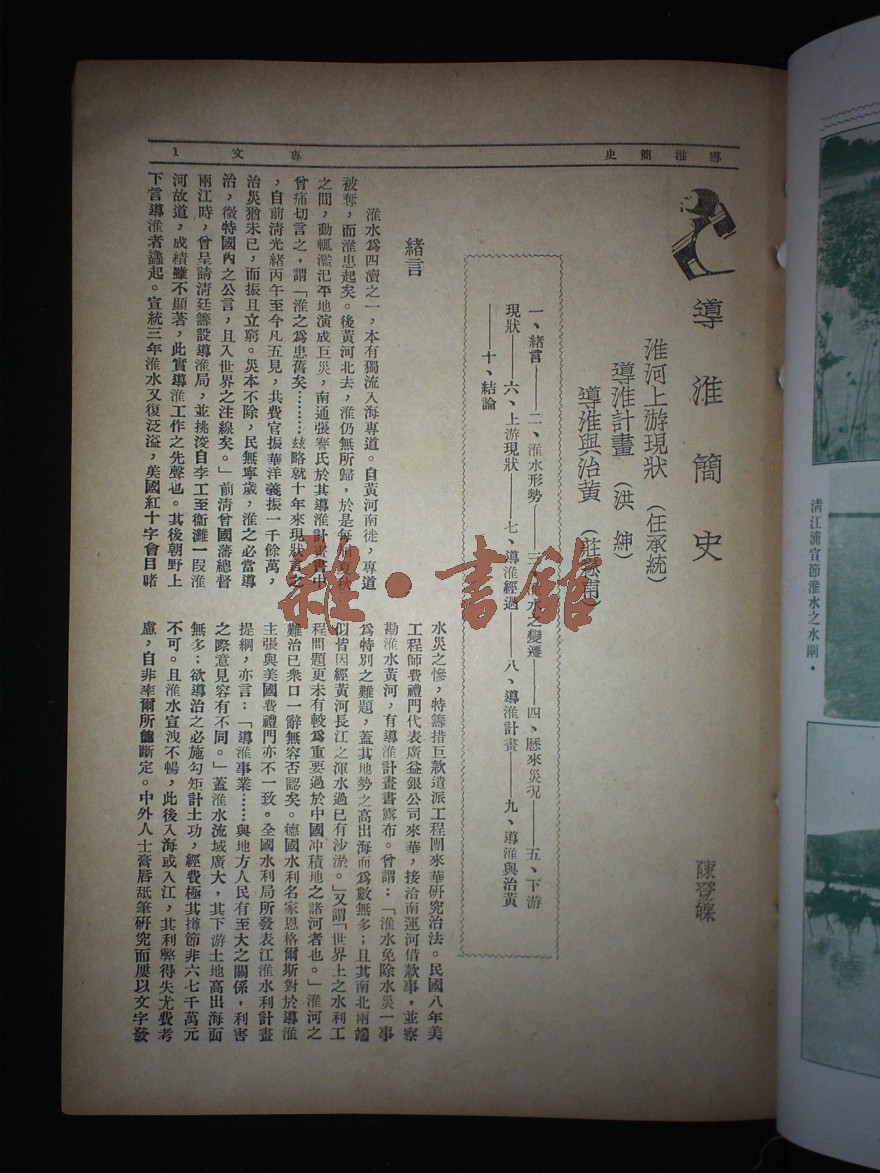 導淮簡史
專文
1
導淮簡史
陳登皞
淮河上游現狀 (任承統)
導淮計畫 (洪紳)
導淮與治黃
一、緒言——二、淮水形勢——三、淮水之變遷——四、歷來災況——五、下游
現狀——六、上游現狀——七、導淮經過——八、導淮計畫——九、導淮與治黃
——十、結論
緒言
淮水爲四瀆之一,本有獨流入海專道。自黃河南徙,專道
被奪,而淮患起矣。後黃河北去,淮仍無所歸,於是每値夏秋
之間,動輒濫汜平地演成巨災,南通張謇氏於其導淮計畫書中
曾痛切言之,謂「淮之爲患舊矣………玆略就十年來現狀言之
,自前清光緖丙午至今凡五見,共費官振華洋義振一千餘萬,
治災猶未已,而振且立窮。災本不除,民無寧歲,淮之必當導
治,微特國內之公言,且入世界之注線矣。」前清曾國藩總督
兩江時,曾呈請清廷籌設導淮局,並挑浚自李工至衞灘一段淮
河故道,成績雖不顯著,此實導淮工作之先聲也。其後朝野上
下言導淮者蠭起。宣統三年淮水又復泛溢,美國紅十字會目睹
水災之慘,特籌措巨款遣派工程團來華硏究治法。民國八年美
工程師費禮門代表廣益銀公司來華,接洽南運河借款事,並察
勘淮水黃河,有導淮計畫書露布。曾謂:「淮水免除水災一事
爲特別之難題,蓋其地勢之高出海面爲數無多;且其南北兩端
似皆因經黃河長江之渾水過已有沙淤。」又謂「世界上之水利工
程問題更未有較爲重要過於中國冲積地之諸河者也。」淮河之
難治已衆口一辭無容否認矣。德國水利名家恩格爾斯對於導淮
主張與美國費禮門亦不一致。全國水利局所發表江淮水利計畫
提綱,亦言:「導淮事業……與地方人民有至大之關係,利害
之際意見容有不同。」蓋淮水流域廣大,其下游土地高出海面
無多;欲導治之必施勾矩計土功,經費極其撙節非六七千萬元
不可。且淮水宣洩不暢,此後入海或入江,其利弊得失尤費考
慮,自非率爾所能斷定。中外人士膏唇舐筆硏究而屢以文字發
清江浦宣節淮水之水閘。
雜·書館